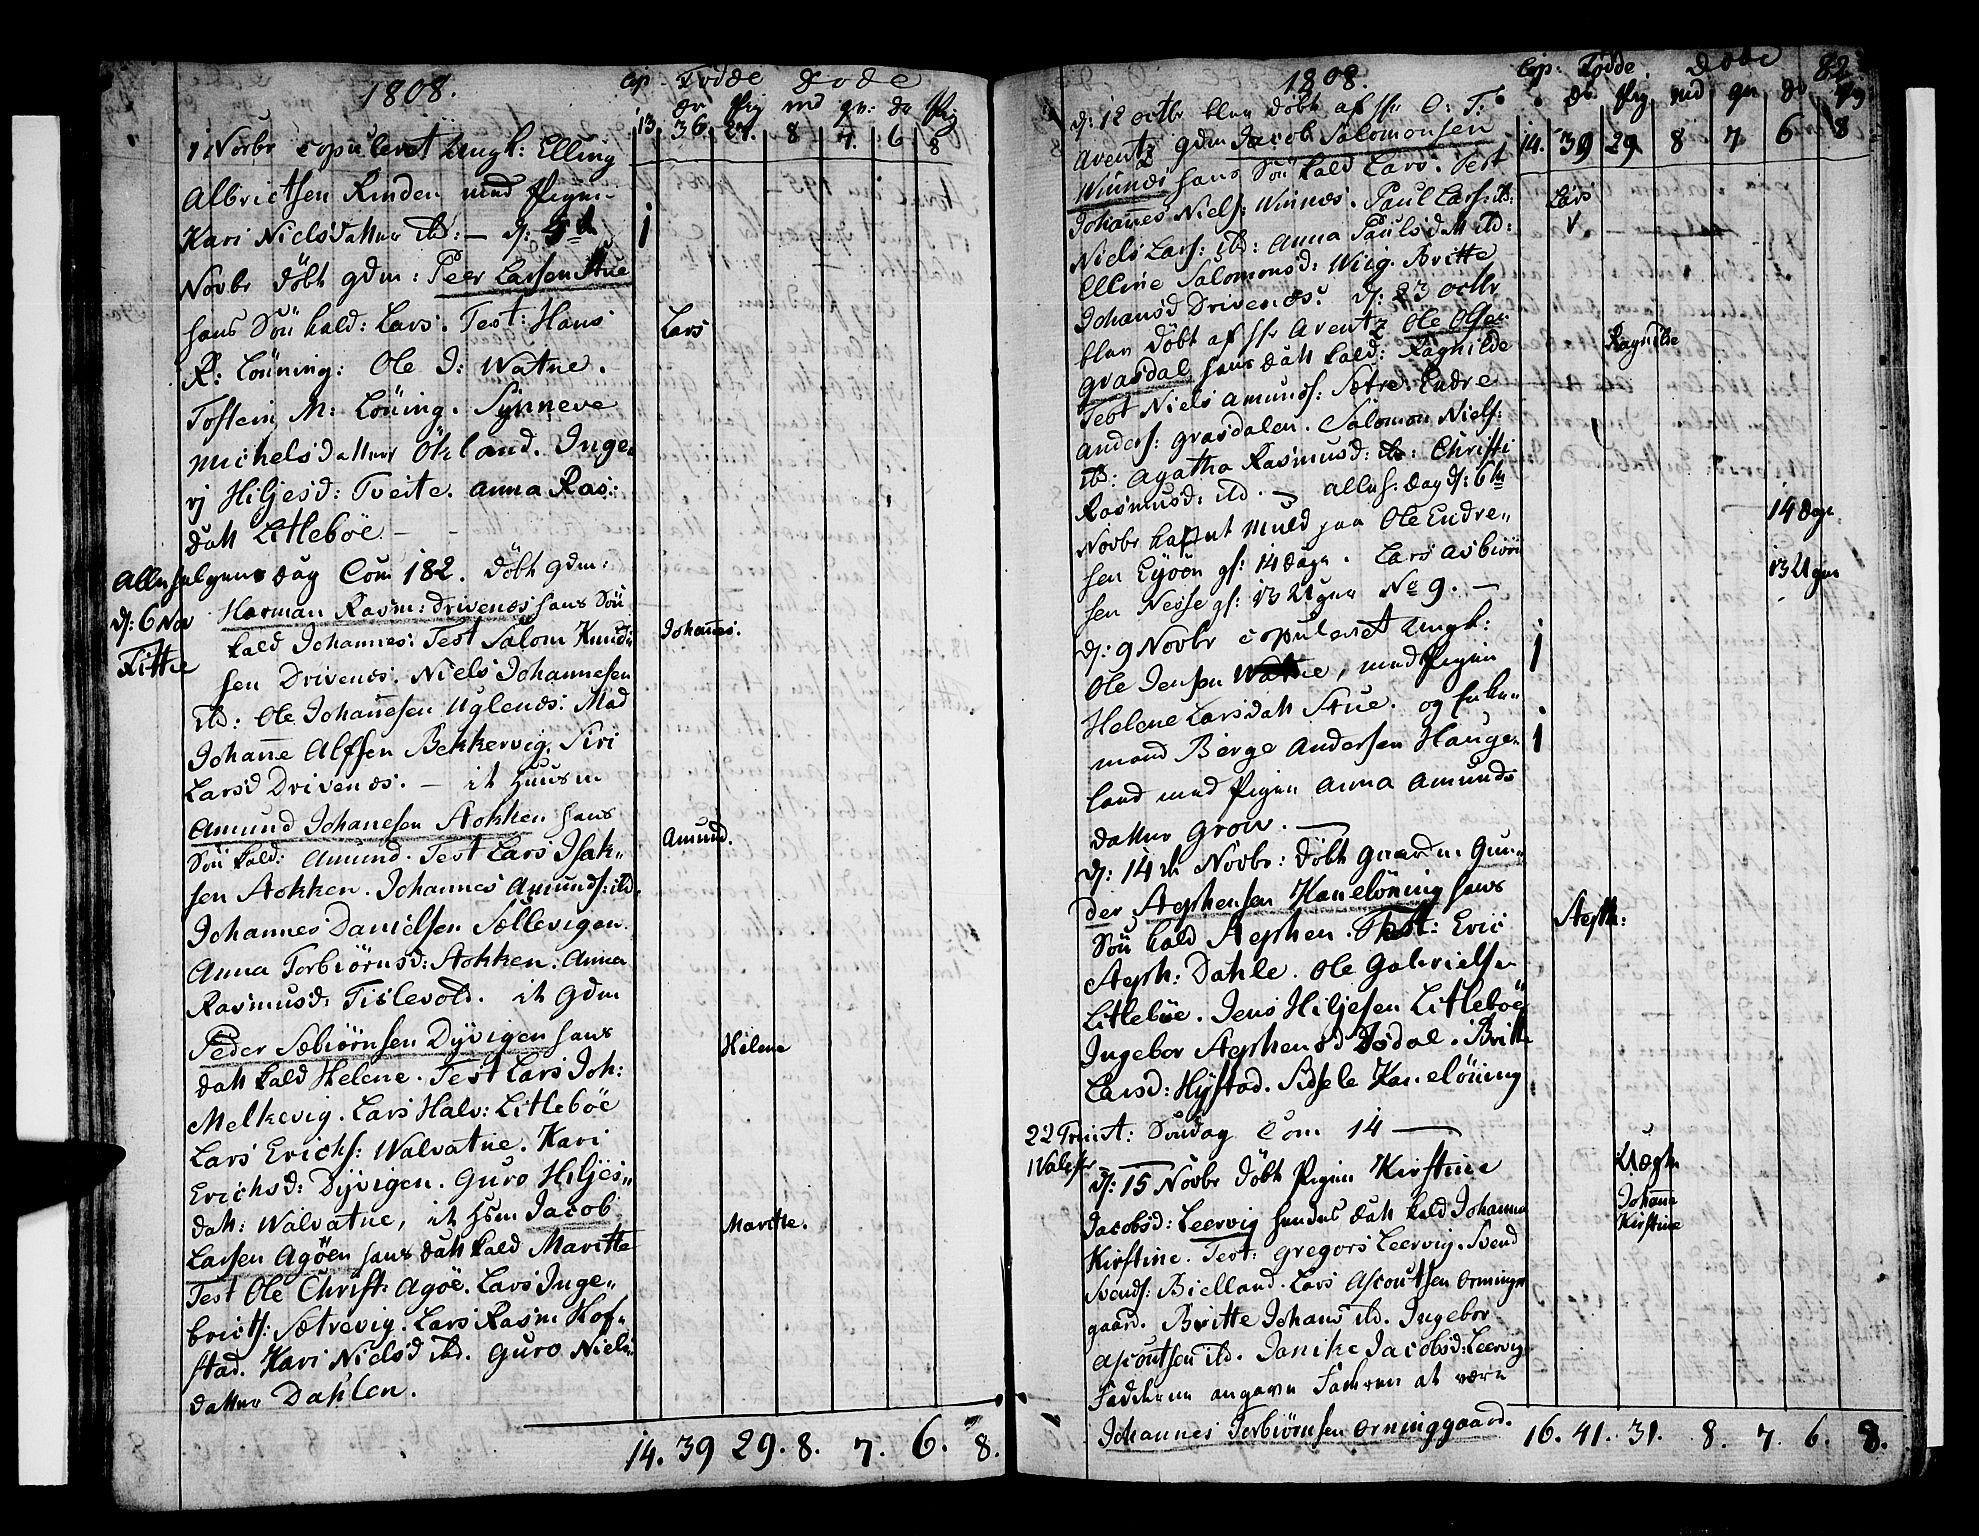 1808.
Cop. Födde Döde
dr Pig md qv: dr Pig
13 36. 27. 8 7. 6 8
1 Novbr copuleret Ungk: Elling
Albrictsen Rinden med Pigen
Kari Nielsdatter ibd: — d: 1
Novbr döbt gdm: Peer Larsen Stue
hans Sön kald: Lars. Test: Hans Lars
R: Löuning: Ole J: Watne.
Tostein M: Löning. Synneve
MichelsdatterÖkland. Inge
Hiljesd: Tveite. Anna Ras:
datt Litleböe —
Allehelgens dag Com 182. döbt gdm:
d: 6 Nov Harman Rasm: Drivenæs hans Sön
Fittie kald Johannes: Test Salom Knud: Johannes.
sen Drivenæs. Niels Johannesen
ibd: Ole Johannesen Uglenæs: Mad
Johanne Alfsen Bekkervig. Siri
Larsd Drivenæs. — it Huusm
Amund Johanesen Stokken hans
Sön kald: Amund. Test Lars Isak- Amund.
sen Stokken. Johannes Amunds: ibd.
Johannes Danielsen Sællevigen.
Anna Torbiörnsd: Stokken. Anna
Rasmusd: Tislevold. it Gdm
Peder Sæbiörnsen Dÿvigen hans Helene
datt kald Helene. Test Lars Joh:
Melkevig. Lars Halv: Litleböe
Lars Erichs: Walvatne. Kari
Erichsd: Dÿvigen. Guro Hiljes-
dat: Walvatne, it Hsm Jacob Marithe.
Larsen Agöen hans datt kald Maritte
Test Ole Christ: Agöe. Lars Inge-
brictS: Sætrevig. Lars Rasm Hof-
stad. Kari Nielsd ibd. Guro Niels
datter Dahlen.
14. 39 29. 8. 7. 6. 8.
1808. 82
Cop. Födde Döde
dr. Pig md qv dr Pig
14. 39 29 8 7 6 8
d: 12 octbr blev döbt af Hr O: T:
Arentz gdm Jacob Salomonsen
Winnæs hans Sön kald Lars. Test Lars
Johannes Niels: Winnæs. Paul Lars: ib:
Niels Lars: ibd: Anna Paulsdatt ibd:
Elline Salomonsd: Wiig. Britte
Johansd Drivenæs: d: 23 octbr
blev döbt af Hr Arentz Ole Olsen
Grasdal hans datt kald: Ragnilde Ragnilde
Test Niels Amunds: Sætre. Endre
Anders: Grasdalen. Salomon Niels:
ibd: Agatha Rasmusd: ib: Christi
Rasmusd: ibd. — Alleh: dag d: 6te
Novbr kastet Muld paa Ole Endre- 14 dage
sen Eÿöen gl: 14 dage. Lars Asbiörn
sen Nesse gl: 13 Uger No 9. — 13 Uger
d: 9 Novbr copuleret Ungk: 1
Ole Jensen Watne, med Pigen
Helene Larsdatt Stue. og Enke-
mand Berge Andersen Hauge- 1
land med Pigen Anna Amunds
datter Grov. —
d: 14 Novbr: döbt Gaardm Gun-
der Stephensen Kaneloning hans
Sön kald Stephen. Test: Eric Steph:
Steph: Dahle. Ole Gabrielsen
Litleböe. Jens Hiljesen Litleböe
Ingebor Stephensd Dsdal. Britte
Larsd: Hÿstad. Sidsele Kanelöning
22 Trinit: Söndag Com 14 —
d: 15 Novbr döbt Pigen Kirstine Uægte
Jacobsd: Leervig hendes datt kald Johanna Johanne
Kirstine. Test: Gregors Leervig. Svend Kirstine
Svends: Bielland. Lars Ascoutsen Orninge
gaard. Britte Johans ibd. Ingebor
Ascoutsen ibd. Janike Jacobsd: Leervig
Fadderne angave Faderen at være
Johannes Torbiörnsen Orninggaard.
16. 41. 31. 8. 7. 6. 8.